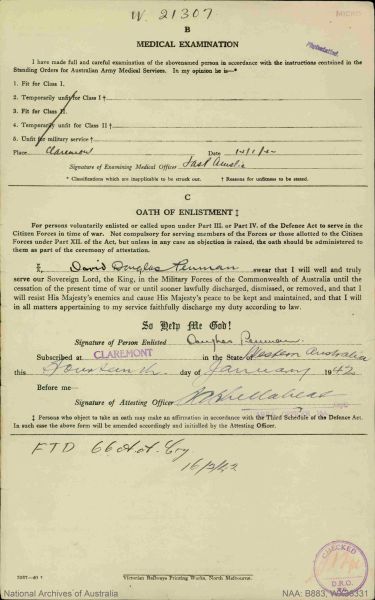 W. 21307
B
MEDICAL EXAMINATION
I have made full and careful examination of the abovenamed person in accordance with the instructions contained in the
Standing Orders for Australian Army Medical Services. In my opinion he is—*
1. Fit for Class I.
2. Temporarily unfit for Class I †
3. Fit for Class II.
4. Temporarily unfit for Class II †
5. Unfit for military service †
Place Claremont Date 14/1/42
Signature of Examining Medical Officer
* Classifications which are inapplicable to be struck out. † Reasons for unfitness to be stated.
C
OATH OF ENLISTMENT ‡
For persons voluntarily enlisted or called upon under Part III. or Part IV. of the Defence Act to serve in the
Citizen Forces in time of war. Not compulsory for serving members of the Forces or those allotted to the Citizen
Forces under Part XII. of the Act, but unless in any case an objection is raised, the oath should be administered
to them as part of the ceremony of attestation.
I, David Douglas Penman swear that I will well and truly
serve our Sovereign Lord, the King, in the Military Forces of the Commonwealth of Australia until the
cessation of the present time of war or until sooner lawfully discharged, dismissed, or removed, and that I
will resist His Majesty's enemies and cause His Majesty's peace to be kept and maintained, and that I will
in all matters appertaining to my service faithfully discharge my duty according to law.
So Help Me God!
Signature of Person Enlisted Douglas Penman
Subscribed at CLAREMONT in the State of Western Australia
this Fourteenth day of January 1942
Before me—
Signature of Attesting Officer
‡ Persons who object to take an oath may make an affirmation in accordance with the Third Schedule of the Defence Act.
In such case the above form will be amended accordingly and initialled by the Attesting Officer.
FTD 66 A.A. Cy
16/2/42
CHECKED
D.R.O.
Victorian Railways Printing Works, North Melbourne.
National Archives of Australia
NAA: B883,